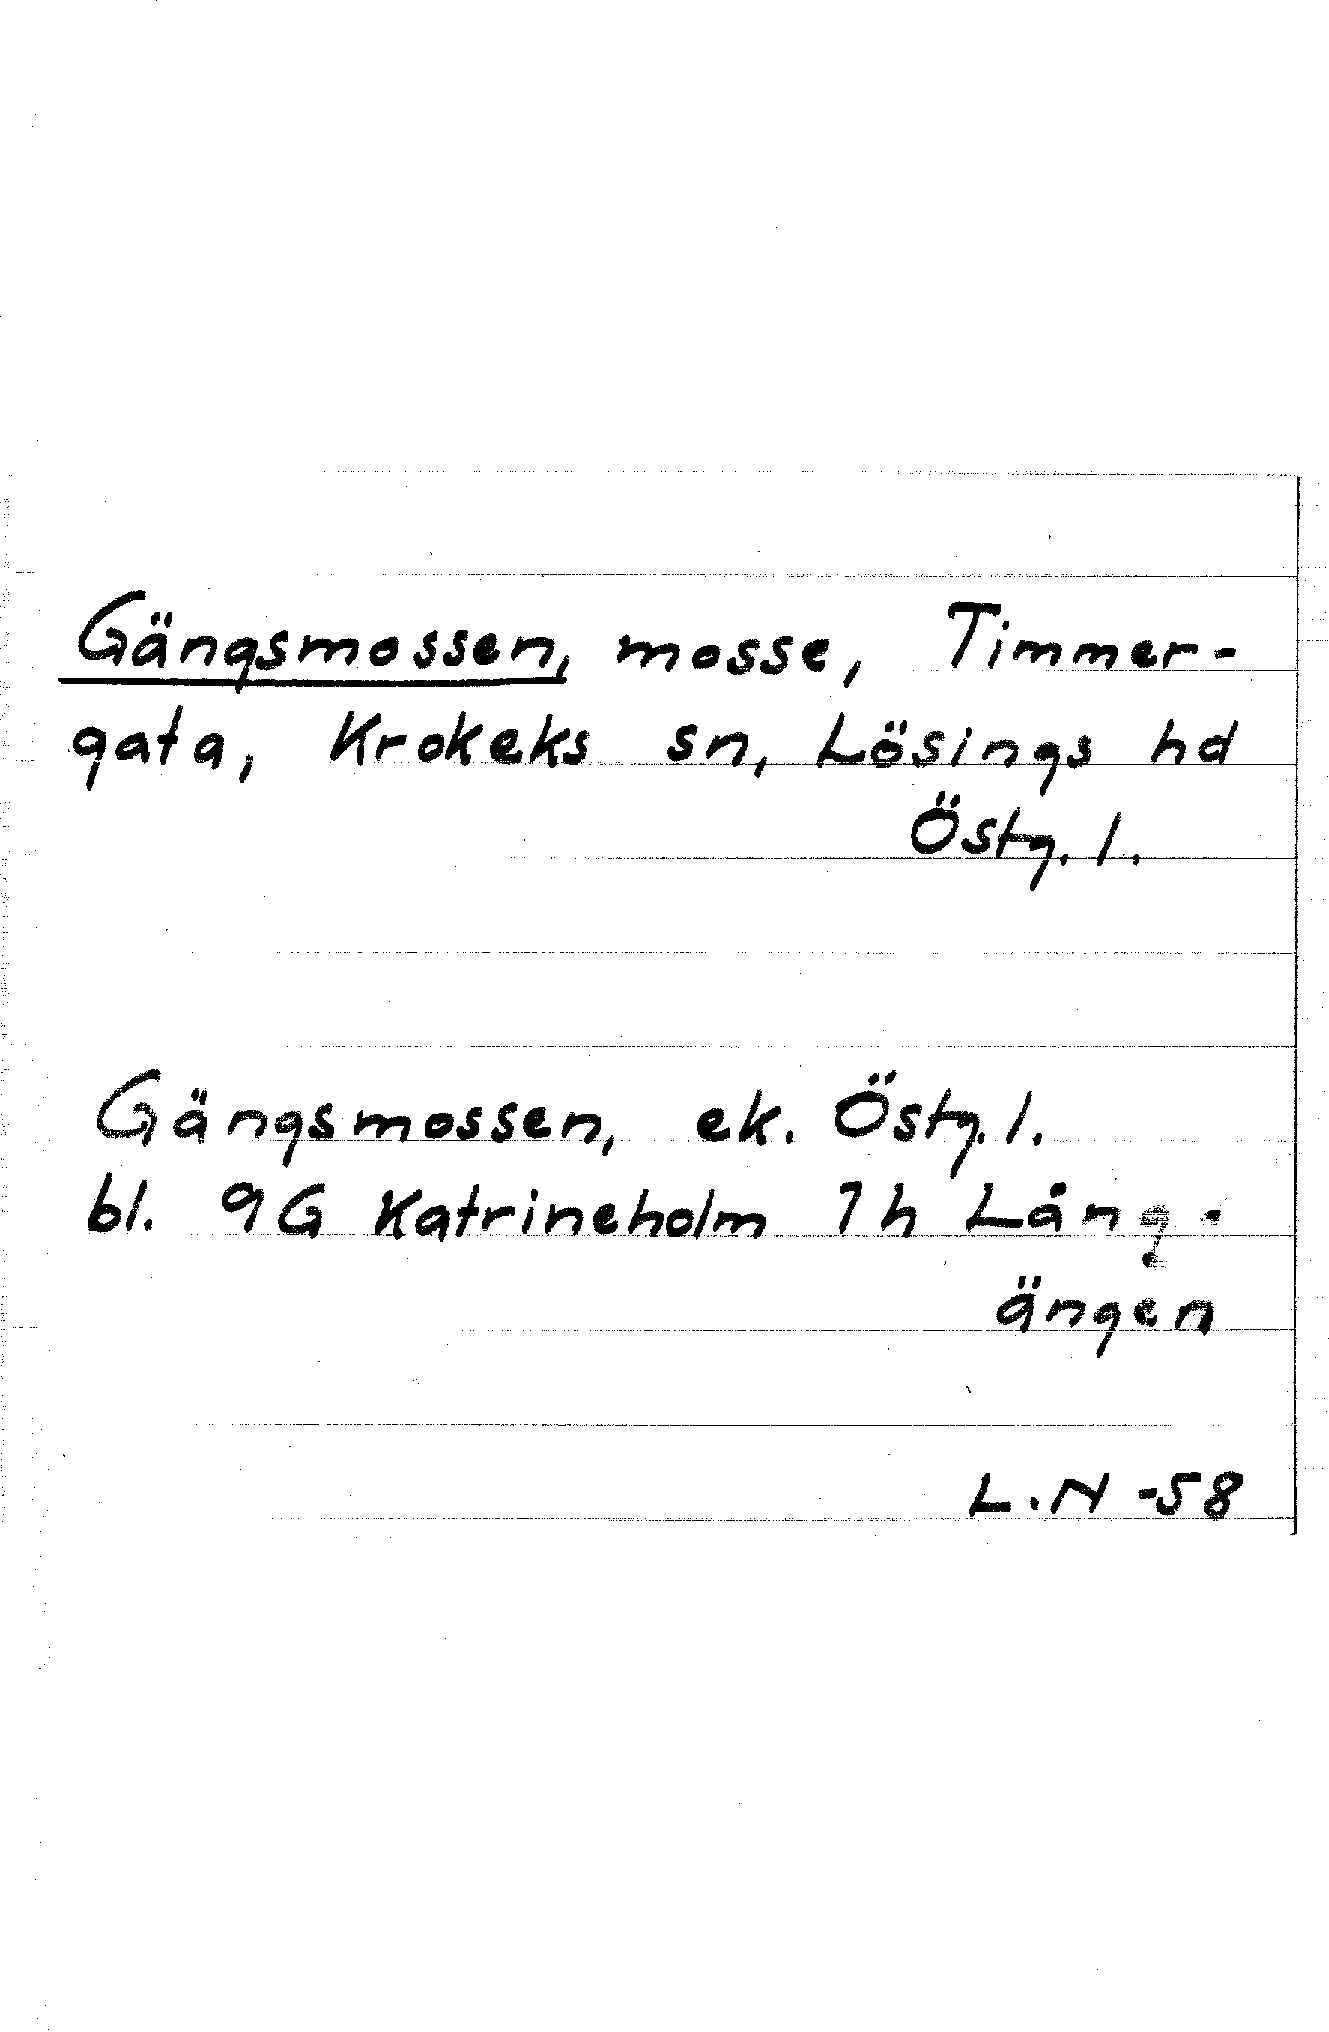 Gängsmossen, mosse, Timmer-
gata, Krokeks sn, Lösings hd
Östg. l.
Gängsmossen, ek. Östg. l.
bl. 9G Katrineholm 7h Lång-
ängen
L.N -58